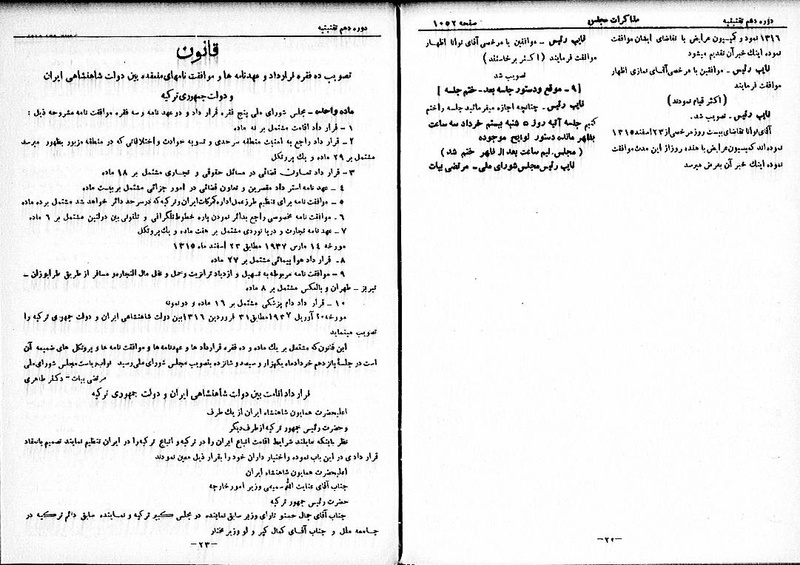 دوره دهم تقنینیه
مذاکرات مجلس
صفحه ۱۰۵۲
۱۳۱۶ نموده و کمیسیون عرایض با تقاضای ایشان موافقت
نموده اینک خبر آن تقدیم میشود
نایب رئیس ـ موافقین با مرخصی آقای نمازی اظهار
موافقت فرمایند
(اکثر قیام نمودند)
نایب رئیس ـ تصویب شد.
آقای توانا تقاضای بیست روز مرخصی از ۲۳ اسفند ۱۳۱۵
نموده‌اند کمیسیون عرایض با هفده روز از این مدت موافقت
نموده اینک خبر آن بعرض میرسد
نایب رئیس ـ موافقین با مرخصی آقای توانا اظهار
موافقت فرمایند (اکثر برخاستند)
تصویب شد
[۹ ـ موقع و دستور جلسه بعد ـ ختم جلسه]
نایب رئیس ـ چنانچه اجازه میفرمائید جلسه را ختم
کنیم جلسه آتیه روز ۵ شنبه بیستم خرداد سه ساعت
بظهر مانده دستور لوایح موجوده
(مجلس نیم ساعت بعد از ظهر ختم شد)
نایب رئیس مجلس شورای ملی ـ مرتضی بیات
ـ ۲۲ ـ
دوره دهم تقنینیه
قانون
تصویب ده فقره قرارداد و عهدنامه ها و موافقت نامهای منعقده بین دولت شاهنشاهی ایران
و دولت جمهوری ترکیه
ماده واحده ـ مجلس شورای ملی پنج فقره قرار داد و دو عهد نامه و سه فقره موافقت نامه مشروحه ذیل :
۱ ـ قرار داد اقامت مشتمل بر نه ماده
۲ ـ قرار داد راجع به امنیت منطقه سرحدی و تسویه حوادث و اختلافاتی که در منطقه مزبور بظهور میرسد
مشتمل بر ۲۹ ماده و یک پروتکل
۳ ـ قرار داد تعاون قضائی در مسائل حقوقی و تجاری مشتمل بر ۱۸ ماده
۴ ـ عهد نامه استرداد مقصرین و تعاون قضائی در امور جزائی مشتمل بر بیست ماده
۵ ـ موافقت نامه برای تنظیم طرز عمل اداره گمرکات ایران و ترکیه که در سرحد دائر خواهد شد مشتمل بر ده ماده
۶ ـ موافقت نامه مخصوصی راجع بدائر نمودن پاره خطوط تلگرافی و تلفونی بین دولتین مشتمل بر ۶ ماده
۷ ـ عهد نامه تجارت و دریا نوردی مشتمل بر هفت ماده و یک پروتکل
مورخه ۱۴ مارس ۱۹۳۷ مطابق ۲۳ اسفند ماه ۱۳۱۵
۸ ـ قرار داد هواپیمائی مشتمل بر ۲۷ ماده
۹ ـ موافقت نامه مربوطه به تسهیل و ازدیاد ترانزیت و حمل و نقل مال التجاره و مسافر از طریق طرابوزان ـ
تبریز ـ طهران و بالعکس مشتمل بر ۸ ماده
۱۰ ـ قرار داد دام پزشکی مشتمل بر ۱۶ ماده و دو نمونه
مورخه ۲۰ آوریل ۱۹۳۷ مطابق ۳۱ فروردین ۱۳۱۶ بین دولت شاهنشاهی ایران و دولت جمهوری ترکیه را
تصویب مینماید
این قانون که مشتمل بر یک ماده و ده فقره قرارداد ها و عهدنامه ها و موافقت نامه ها و پروتکل های ضمیمه آن
است در جلسه پانزدهم خرداد ماه یکهزار و سیصد و شانزده بتصویب مجلس شورای ملی رسید نواب ریاست مجلس شورای ملی
مرتضی بیات ـ دکتر طاهری
قرار داد اقامت بین دولت شاهنشاهی ایران و دولت جمهوری ترکیه
اعلیحضرت همایون شاهنشاه ایران از یک طرف
و حضرت رئیس جمهور ترکیه از طرف دیگر
نظر باینکه مایلند شرایط اقامت اتباع ایران را در ترکیه و اتباع ترکیه را در ایران تنظیم نمایند تصمیم بانعقاد
قرار دادی در این باب نموده و اختیار داران خود را بقرار ذیل معین نمودند
اعلیحضرت همایون شاهنشاه ایران
جناب آقای عنایت الله سمیعی وزیر امور خارجه
حضرت رئیس جمهور ترکیه
جناب آقای جمال حسنو تارای وزیر سابق نماینده در مجلس کبیر ترکیه و نماینده سابق دائم ترکیه در
جامعه ملل و جناب آقای کمال کپر و لو وزیر مختار
ـ ۲۳ ـ